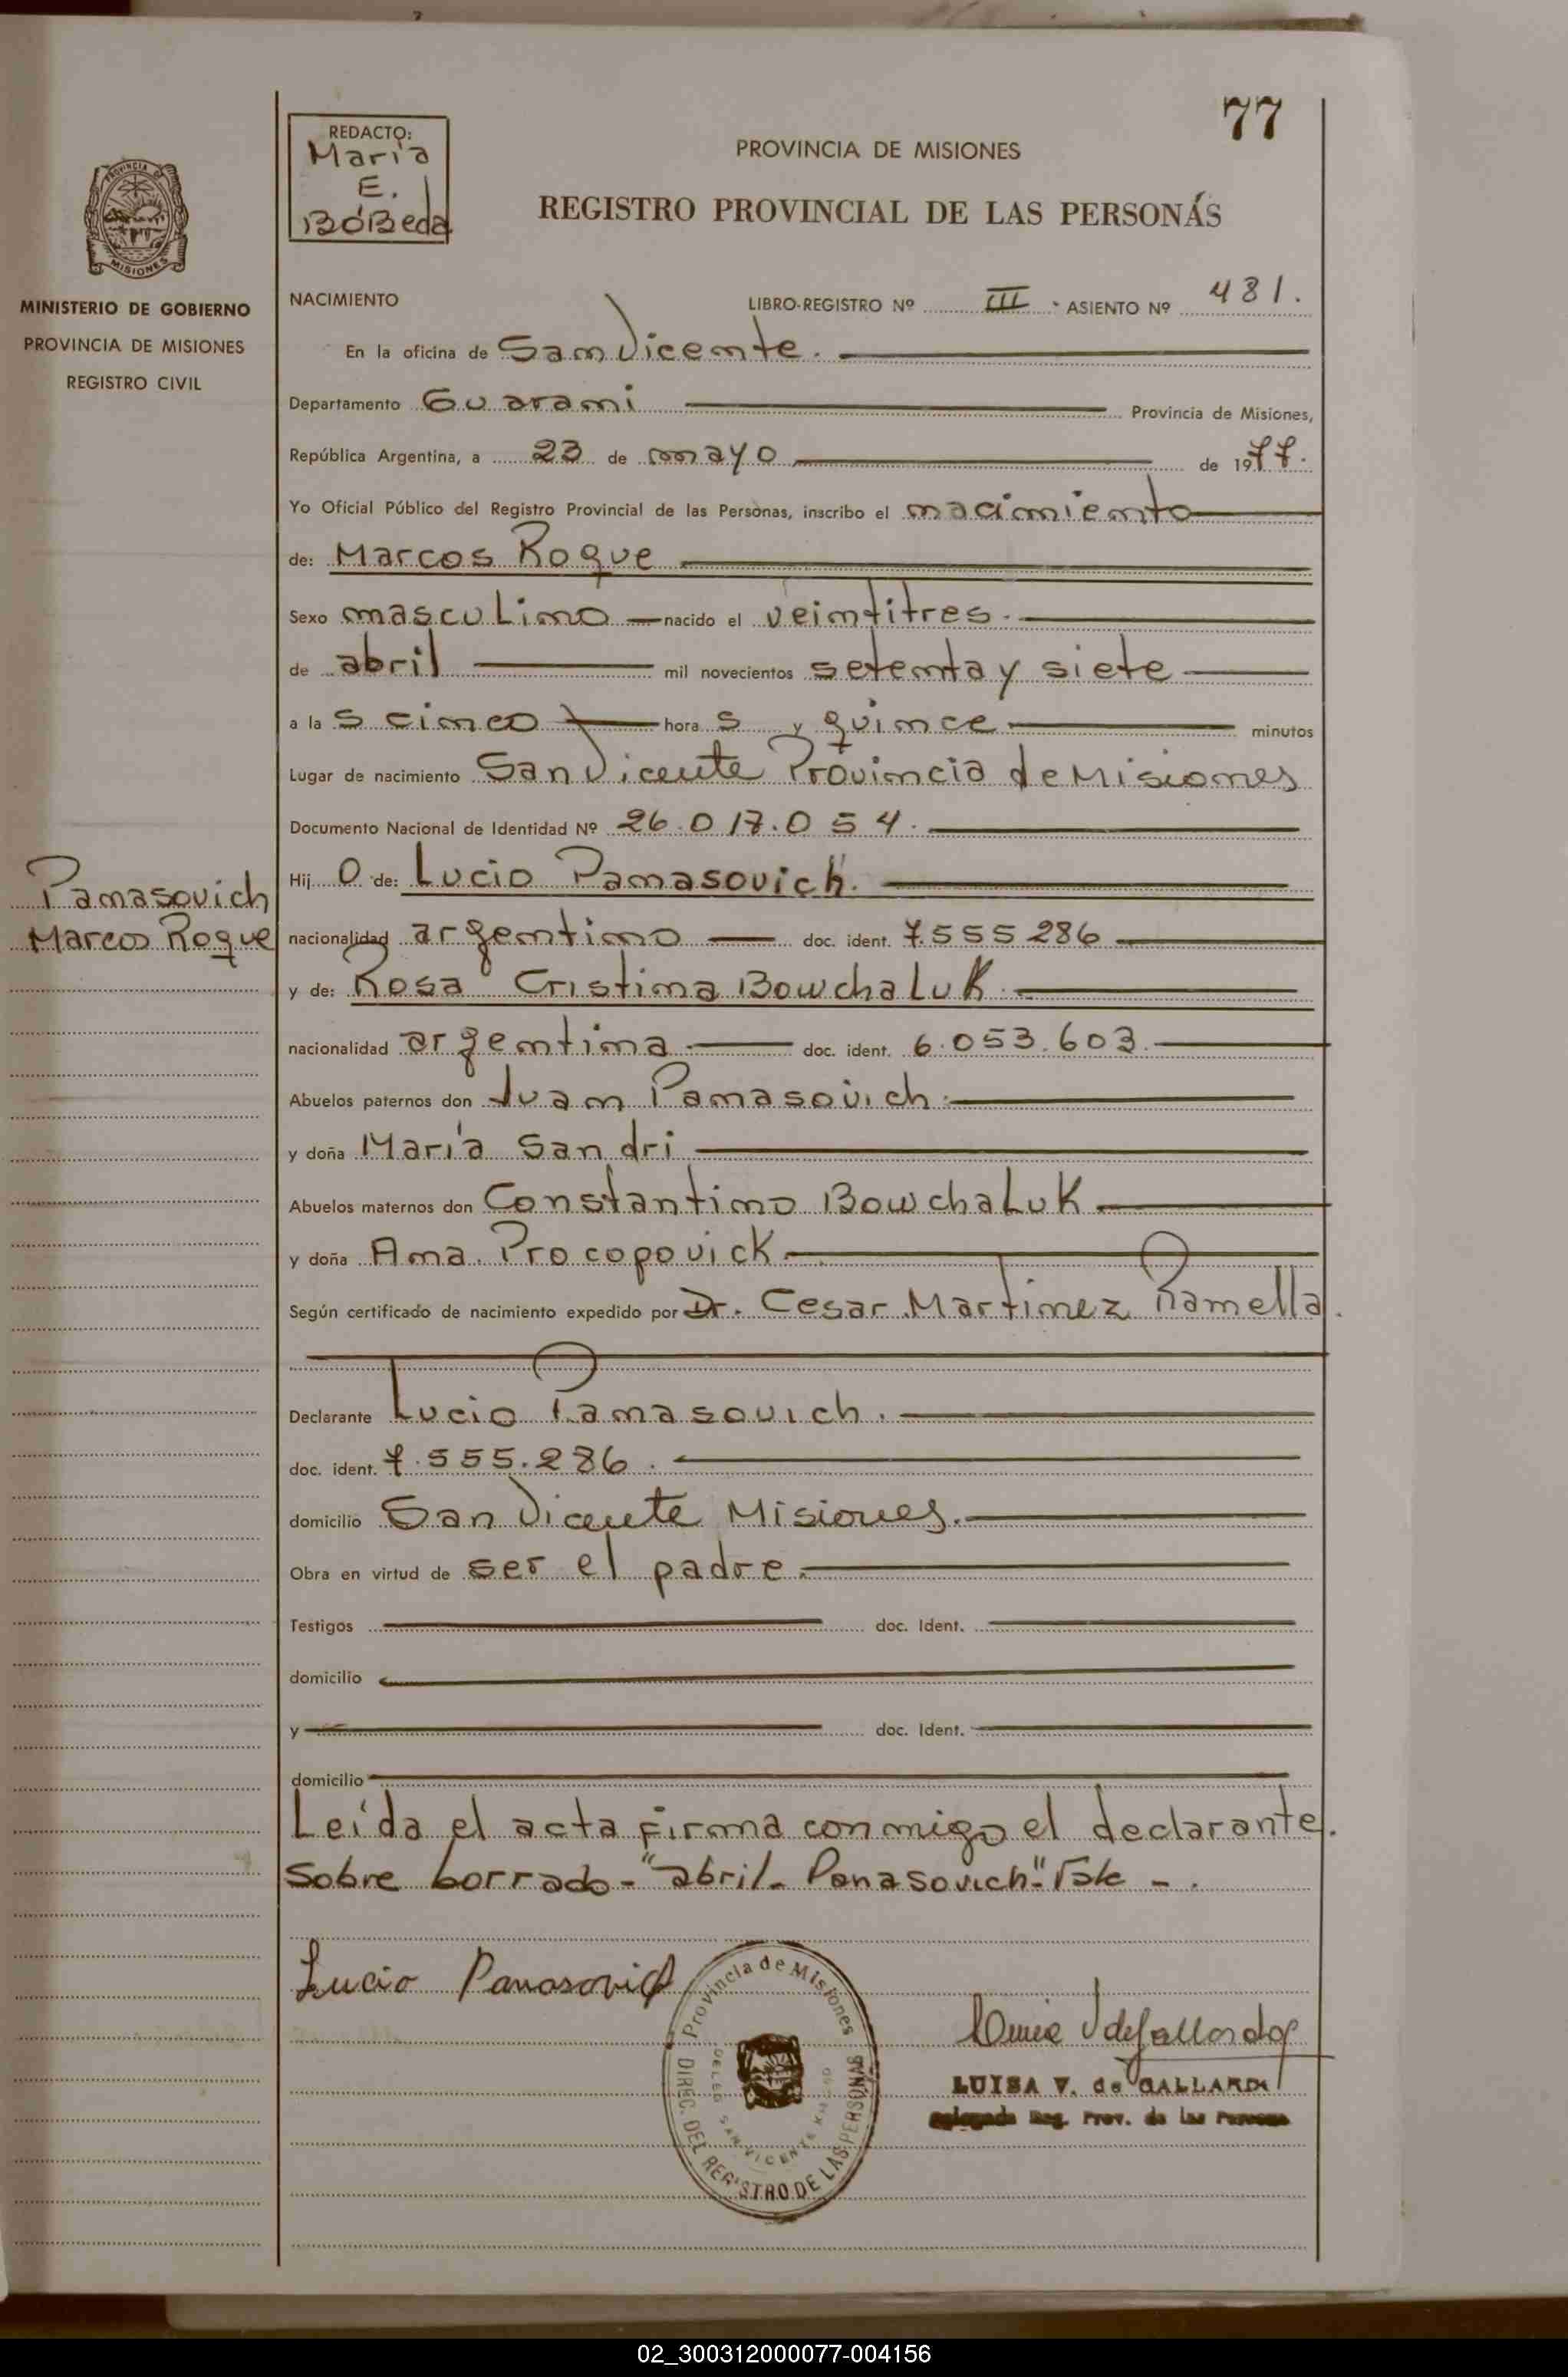 77
REDACTO:
María
E.
BóBeda
PROVINCIA DE MISIONES
REGISTRO PROVINCIAL DE LAS PERSONAS
PROVINCIA DE
MISIONES
MINISTERIO DE GOBIERNO
PROVINCIA DE MISIONES
REGISTRO CIVIL
NACIMIENTO LIBRO-REGISTRO Nº III ASIENTO Nº 481.
En la oficina de San Vicente.
Departamento Guarani Provincia de Misiones,
República Argentina, a 23 de mayo de 1977.
Yo Oficial Público del Registro Provincial de las Personas, inscribo el nacimiento
de: Marcos Roque
Sexo masculino nacido el veintitres.
de abril mil novecientos setenta y siete
a la s cinco hora s y quince minutos
Lugar de nacimiento San Vicente Provincia de Misiones
Documento Nacional de Identidad Nº 26.017.054.
Hij o de: Lucio Panasovich.
Panasovich
Marcos Roque
nacionalidad argentino doc. ident. 7.555.286
y de: Rosa Cristina Bowchaluk.
nacionalidad argentina doc. ident. 6.053.603.
Abuelos paternos don Juan Panasovich.
y doña María Sandri
Abuelos maternos don Constantino Bowchaluk
y doña Ana Procopovick
Según certificado de nacimiento expedido por Dr. Cesar Martinez Ramella.
Declarante Lucio Panasovich.
doc. ident. 7.555.286.
domicilio San Vicente Misiones.
Obra en virtud de ser el padre.
Testigos doc. Ident.
domicilio
y doc. Ident.
domicilio
Leída el acta firma conmigo el declarante.
Sobre borrado-"abril- Panasovich"-Vale-.
Lucio Panasovich
Provincia de Misiones
DIREC. DEL REGISTRO DE LAS PERSONAS
DELEG. SAN VICENTE
LUISA V. de GALLARDO
Delegada Reg. Prov. de las Personas
02_300312000077-004156